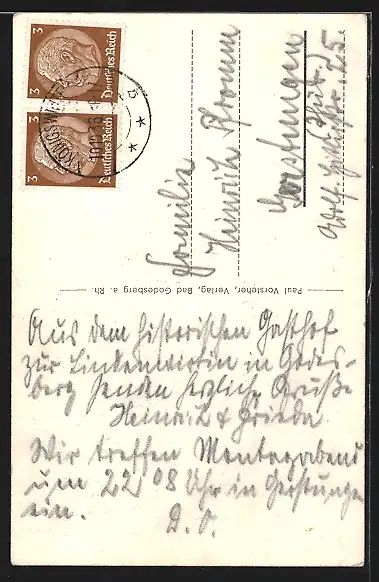 3
Deutsches Reich
3
Deutsches Reich
KÖNIGSWINTER
Familie
Heinrich Fromm
Gerstungen
Adolf Hitlerstr. 25
Paul Vorsteher, Verlag, Bad Godesberg a. Rh.
Aus dem historischen Gasthof
zur Lindenwirtin in Godes-
berg senden herzliche Grüße
Heinrich & Frieda
Wir treffen Montagabend
um 22 08 Uhr in Gerstungen
ein.
D. O.